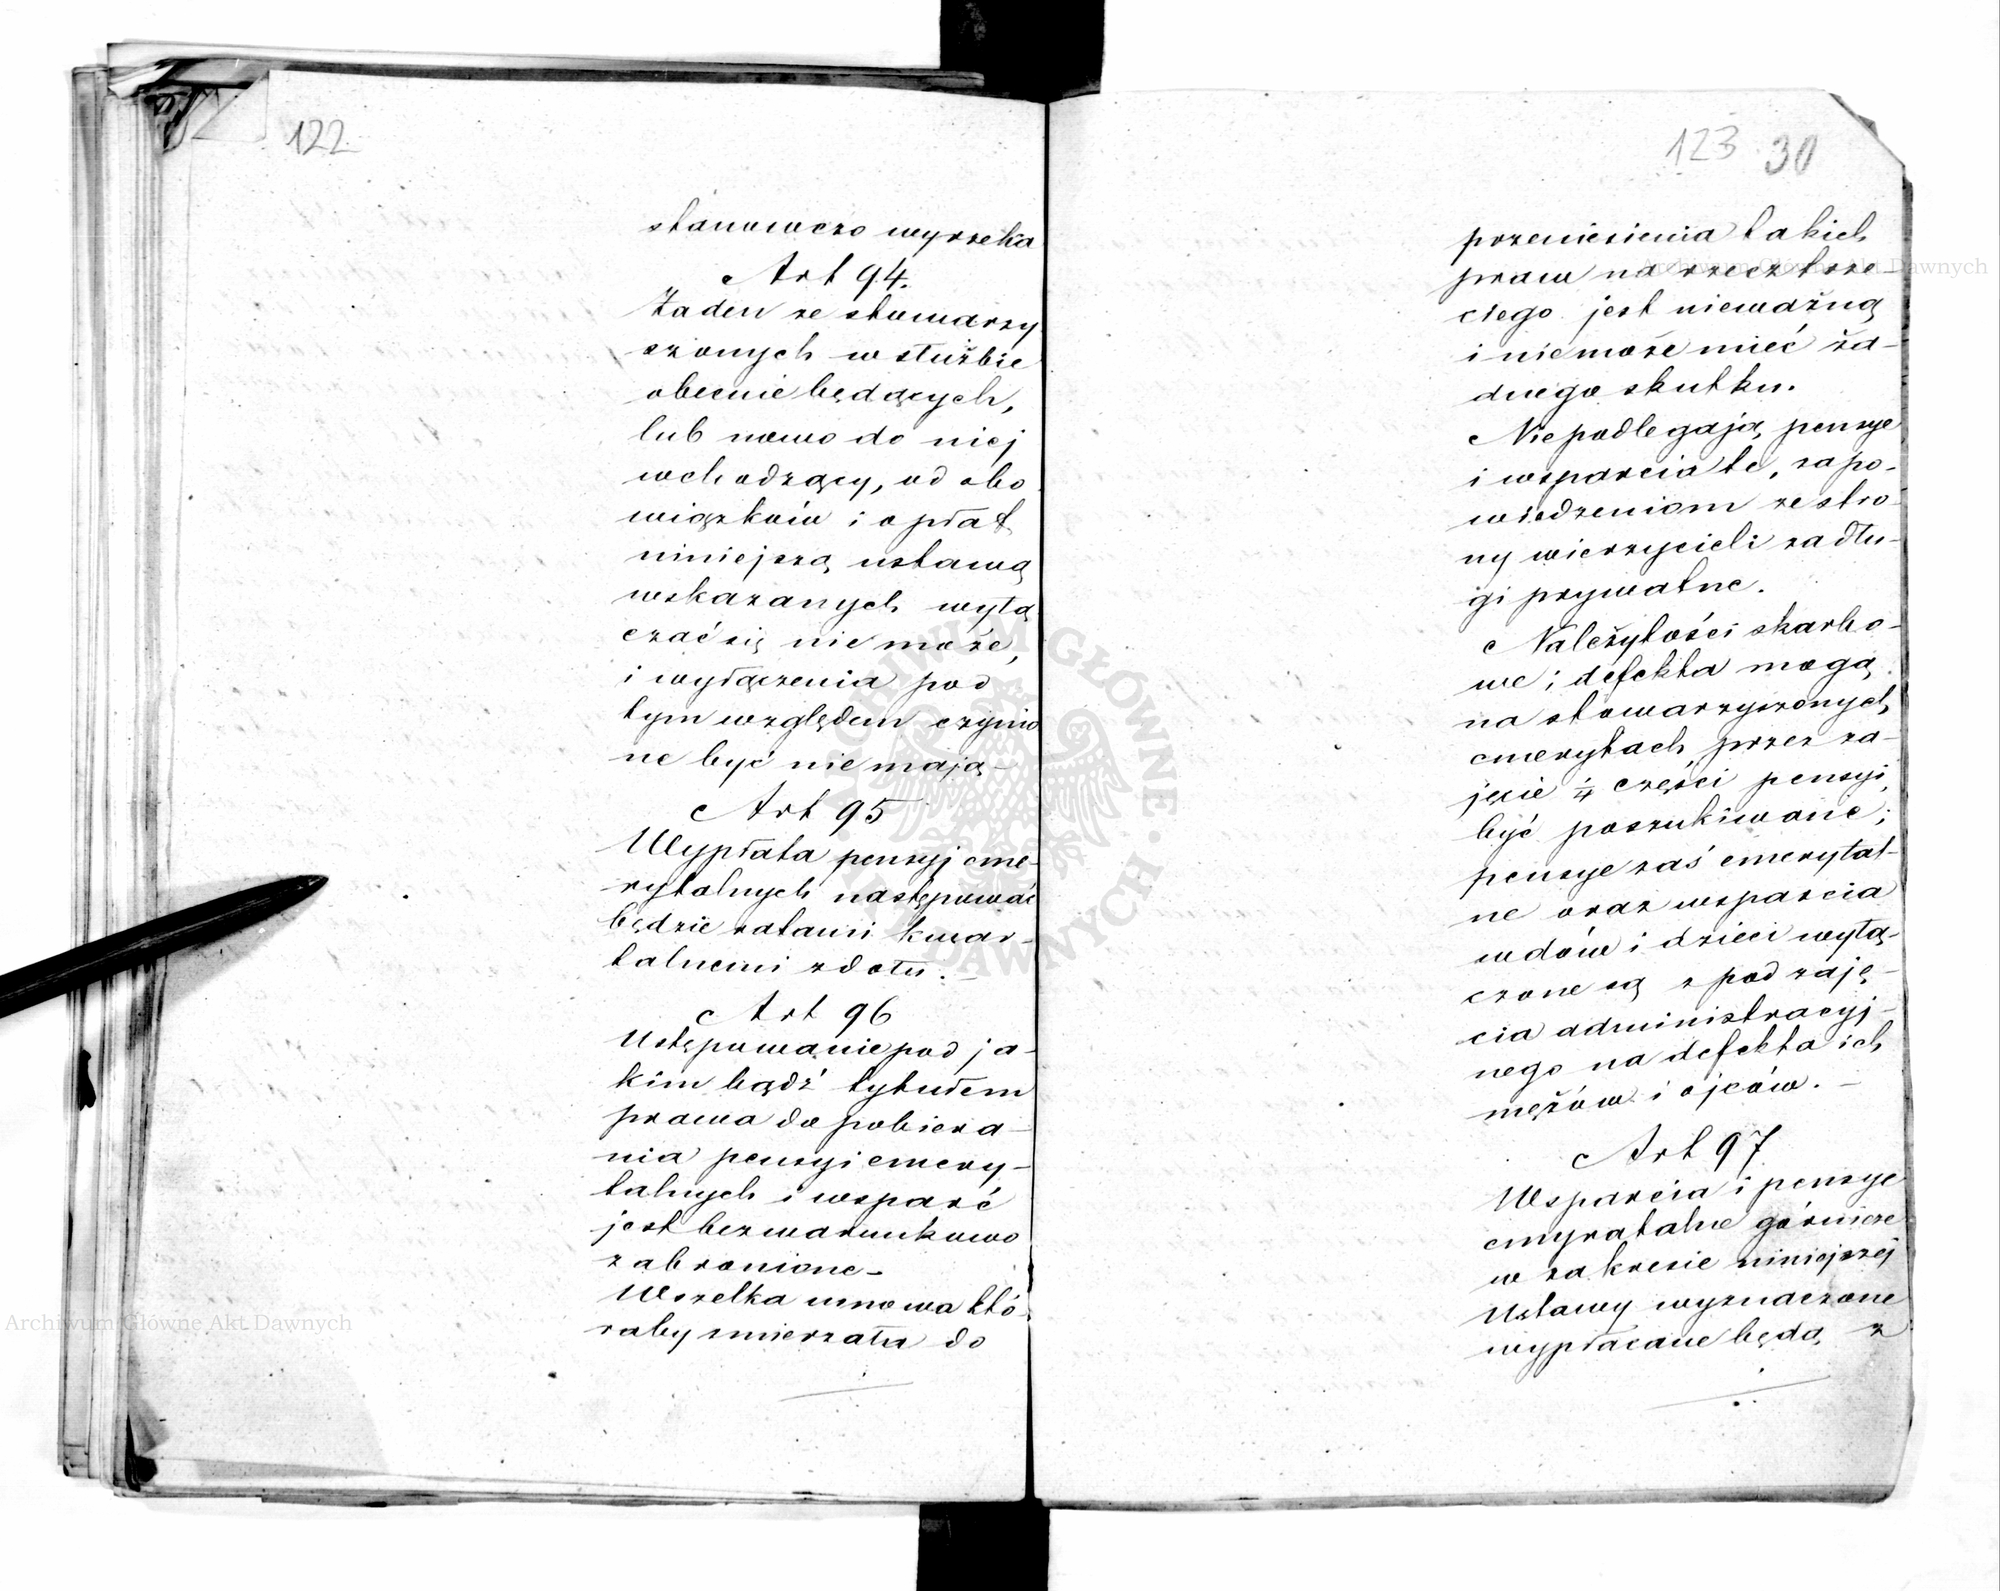 122
stanowczo wyrzeka
Art 94.
Żaden ze stowarzy
szonych w służbie
obecnie będących,
lub nowo do niej
wchodzący, od obo
wiązków i opłat
niniejszą ustawą
wskazanych wyłą
czać się nie może,
i wyłączenia pod
tym względem czynio
ne być nie mają –
Art 95
Wypłata pensyj eme-
rytalnych następować
będzie ratami kwar-
talnemi zdołu. –
Art 96
Ustępowanie pod ja-
kim bądź tytułem
prawa do pobiera-
nia pensyi emery-
talnych i wsparć
jest bezwarunkowo
zabronione –
Wszelka umowa któ-
raby zmierzała do
123 30
przeniesienia takich
praw na rzecz trze-
ciego jest nieważną
i nie może mieć ża-
dnego skutku.
Nie podlegają pensye
i wsparcia te, zapo-
wiedzeniom ze stro-
ny wierzycieli za dłu-
gi prywatne.
Należytości skarbo-
we i defekta mogą
na stowarzyszonych
emerytach przez za-
jęcie 1/4 części pensyi,
być poszukiwane;
pensye zaś emerytal-
ne oraz wsparcia
wdów i dzieci wyłą-
czone są z pod zaję-
cia administracyj-
nego na defekta ich
mężów i ojców. –
Art 97
Wsparcia i pensye
emyratalne górnicze
w zakresie niniejszej
Ustawy wyznaczone
wypłacane będą z
Archiwum Główne Akt Dawnych
Archiwum Główne Akt Dawnych
ARCHIWUM GŁÓWNE AKT DAWNYCH